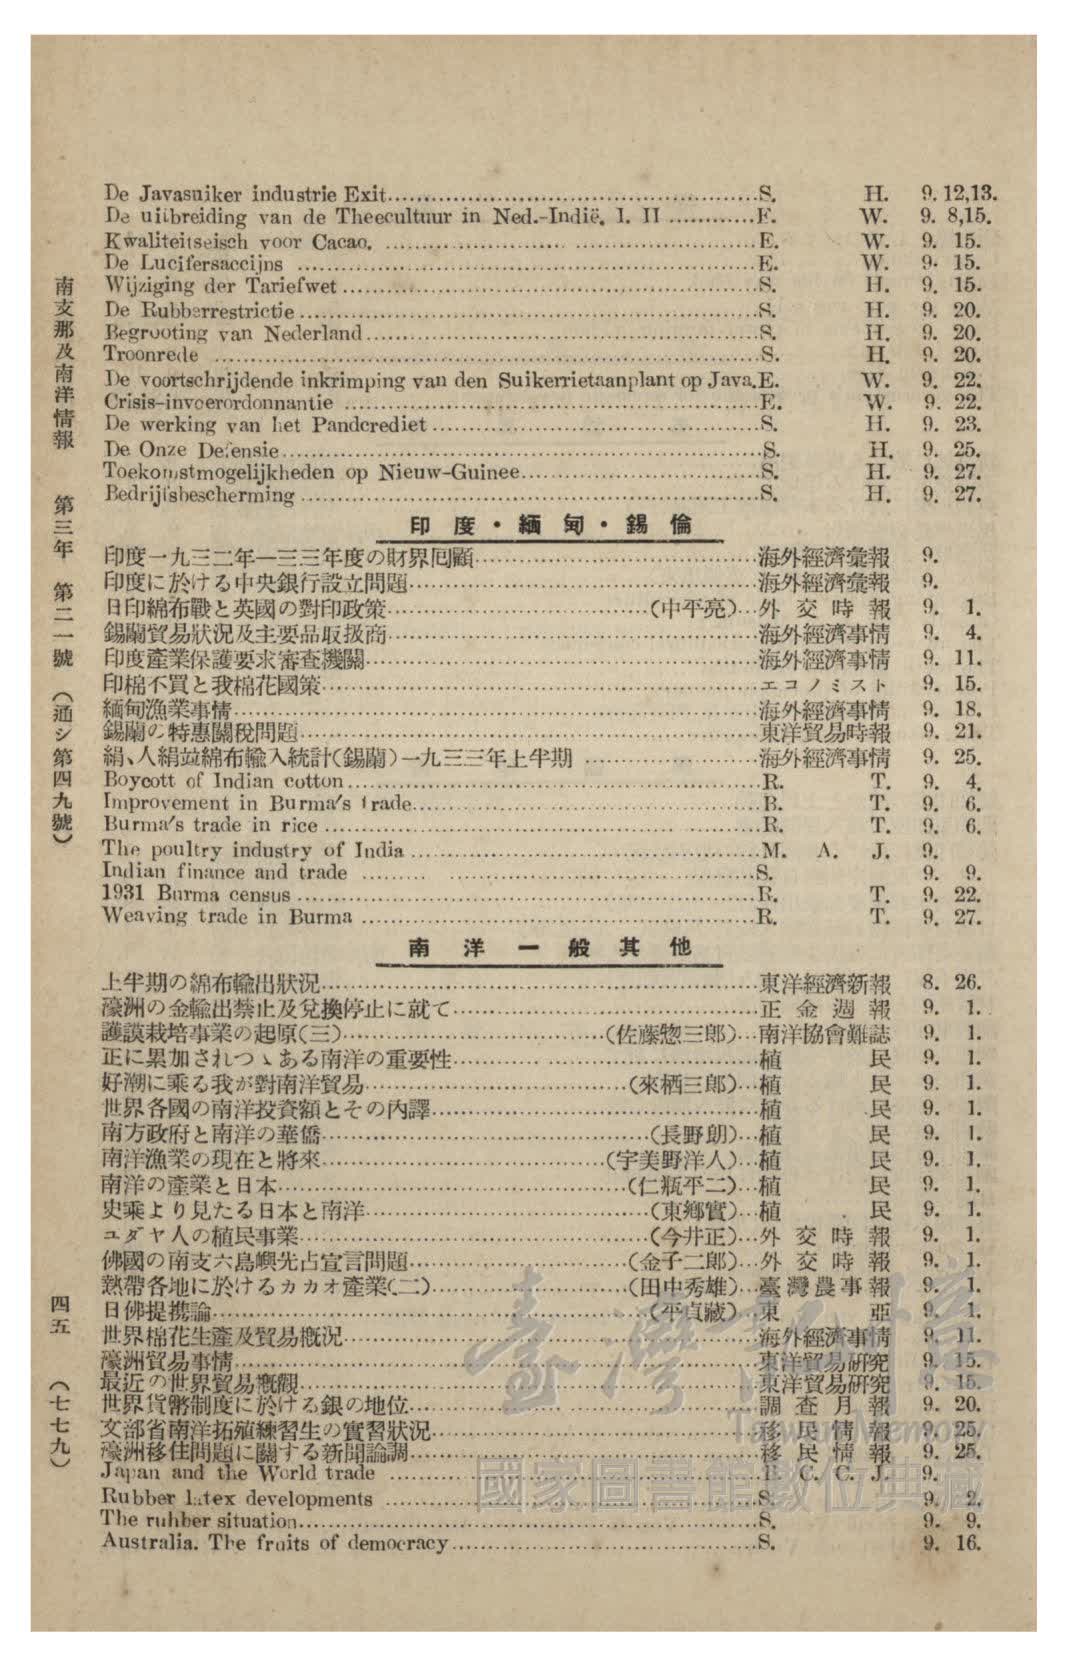 De Javasuiker industrie Exit……S. H. 9. 12,13.
De uitbreiding van de Theecultuur in Ned.-Indië. I. II……E. W. 9. 8,15.
Kwaliteitseisch voor Cacao.……E. W. 9. 15.
De Lucifersaccijns……E. W. 9. 15.
Wijziging der Tariefwet……S. H. 9. 15.
De Rubberrestrictie……S. H. 9. 20.
Begrooting van Nederland……S. H. 9. 20.
Troonrede……S. H. 9. 20.
De voortschrijdende inkrimping van den Suikerrietaanplant op Java.E. W. 9. 22.
Crisis-invoerordonnantie……E. W. 9. 22.
De werking van het Pandcrediet……S. H. 9. 23.
De Onze Defensie……S. H. 9. 25.
Toekomstmogelijkheden op Nieuw-Guinee……S. H. 9. 27.
Bedrijfsbescherming……S. H. 9. 27.
印度・緬甸・錫倫
印度一九三二年—三三年度の財界囘顧……海外經濟彙報 9.
印度に於ける中央銀行設立問題……海外經濟彙報 9.
日印綿布戰と英國の對印政策……(中平亮)…外交時報 9. 1.
錫蘭貿易狀況及主要品取扱商……海外經濟事情 9. 4.
印度產業保護要求審查機關……海外經濟事情 9. 11.
印棉不買と我棉花國策……エコノミスト 9. 15.
緬甸漁業事情……海外經濟事情 9. 18.
錫蘭の特惠關稅問題……東洋貿易時報 9. 21.
絹、人絹竝綿布輸入統計(錫蘭)一九三三年上半期……海外經濟事情 9. 25.
Boycott of Indian cotton……R. T. 9. 4.
Improvement in Burma's trade……B. T. 9. 6.
Burma's trade in rice……R. T. 9. 6.
The poultry industry of India……M. A. J. 9.
Indian finance and trade……S. 9. 9.
1931 Burma census……R. T. 9. 22.
Weaving trade in Burma……R. T. 9. 27.
南洋一般其他
上半期の綿布輸出狀況……東洋經濟新報 8. 26.
濠洲の金輸出禁止及兌換停止に就て……正金週報 9. 1.
護謨栽培事業の起原(三)……(佐藤惣三郎)…南洋協會雜誌 9. 1.
正に累加されつゝある南洋の重要性……植民 9. 1.
好潮に乘る我が對南洋貿易……(來栖三郎)…植民 9. 1.
世界各國の南洋投資額とその內譯……植民 9. 1.
南方政府と南洋の華僑……(長野朗)…植民 9. 1.
南洋漁業の現在と將來……(宇美野洋人)…植民 9. 1.
南洋の產業と日本……(仁瓶平二)…植民 9. 1.
史乘より見たる日本と南洋……(東鄕實)…植民 9. 1.
ユダヤ人の植民事業……(今井正)…外交時報 9. 1.
佛國の南支六島嶼先占宣言問題……(金子二郎)…外交時報 9. 1.
熱帶各地に於けるカカオ產業(二)……(田中秀雄)…臺灣農事報 9. 1.
日佛提携論……(平貞藏)…東亞 9. 1.
世界棉花生產及貿易槪況……海外經濟事情 9. 11.
濠洲貿易事情……東洋貿易研究 9. 15.
最近の世界貿易槪觀……東洋貿易研究 9. 15.
世界貨幣制度に於ける銀の地位……調查月報 9. 20.
文部省南洋拓殖練習生の實習狀況……移民情報 9. 25.
濠洲移住問題に關する新聞論調……移民情報 9. 25.
Japan and the World trade……B. C. C. J. 9.
Rubber latex developments……S. 9. 2.
The rubber situation……S. 9. 9.
Australia. The fruits of democracy……S. 9. 16.
南支那及南洋情報 第三年 第二一號 (通シ第四九號)
四五 (七七九)
臺灣記憶
Taiwan Memory
國家圖書館數位典藏